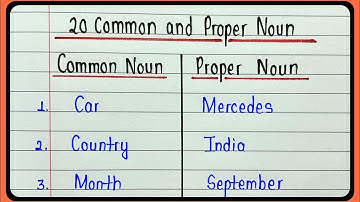 20 Common and Proper Noun
Common Noun Proper Noun
1. Car Mercedes
2. Country India
3. Month September